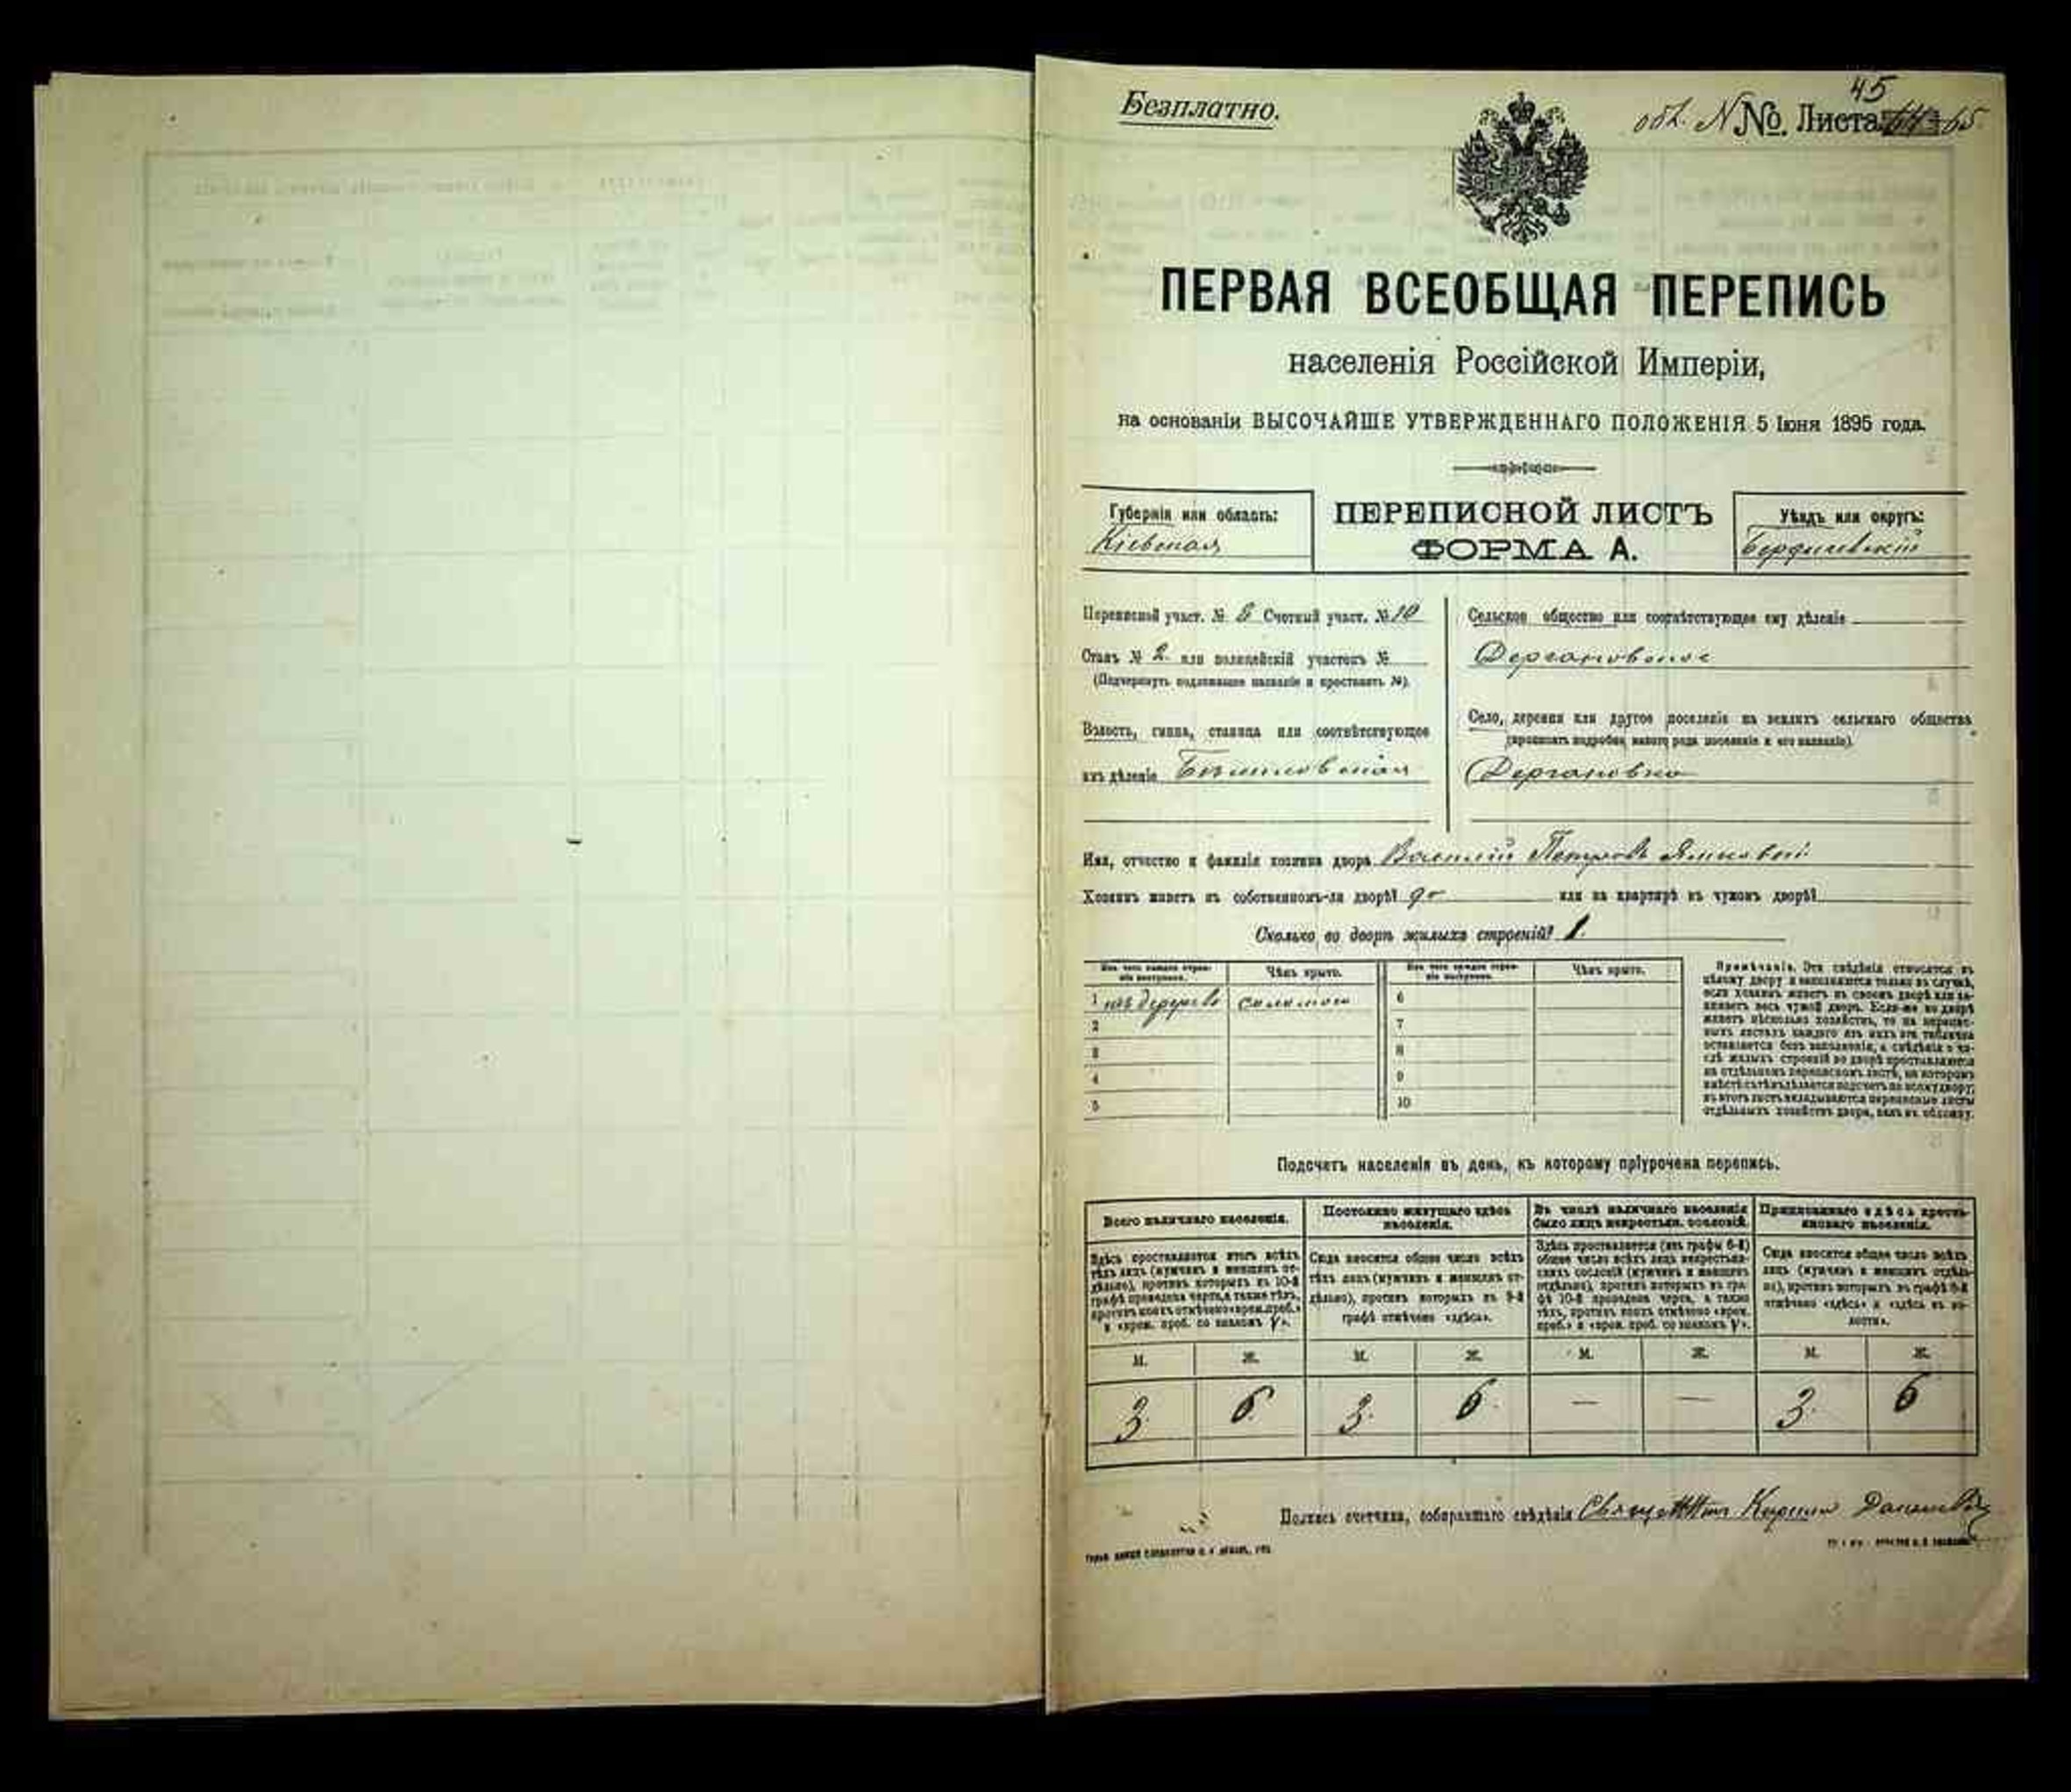 45
Безплатно.
№. Листа 65
ПЕРВАЯ ВСЕОБЩАЯ ПЕРЕПИСЬ
населенія Россійской Имперіи,
на основаніи ВЫСОЧАЙШЕ УТВЕРЖДЕННАГО ПОЛОЖЕНІЯ 5 Іюня 1895 года.
Губернія или область:
Кіевская
ПЕРЕПИСНОЙ ЛИСТЪ
ФОРМА А.
Уѣздъ или округъ:
Бердичевскій
Переписной участ. № 8 Счетный участ. № 10
Станъ № 2 или полицейскій участокъ №
(Подчеркнуть подлежащее названіе и проставить №).
Волость, гмина, станица или соотвѣтствующее
имъ дѣленіе
Сельское общество или соотвѣтствующее ему дѣленіе
Дергановское
Село, деревня или другое поселеніе на земляхъ сельскаго общества
(прописать подробно, какого рода поселеніе и его названіе).
Дергановка
Имя, отчество и фамилія хозяина двора Василій Петровъ
Хозяинъ живетъ въ собственномъ-ли дворѣ? да или на квартирѣ въ чужомъ дворѣ?
Сколько во дворѣ жилыхъ строеній? 1.
Изъ чего каждое строеніе построено. Чѣмъ крыто. Изъ чего каждое строеніе построено. Чѣмъ крыто.
1 изъ дерева соломою 6
2 7
3 8
4 9
5 10
Примѣчаніе. Эти свѣдѣнія относятся къ
цѣлому двору и заполняются только въ случаѣ,
если хозяинъ живетъ въ своемъ дворѣ или за-
нимаетъ весь чужой дворъ. Если-же во дворѣ
живетъ нѣсколько хозяйствъ, то на перепис-
ныхъ листахъ каждаго изъ нихъ эта табличка
оставляется безъ заполненія, а свѣдѣнія о чи-
слѣ жилыхъ строеній во дворѣ проставляются
на отдѣльномъ переписномъ листѣ, на которомъ
вмѣстѣ съ тѣмъ дѣлается подсчетъ по всему двору;
въ этотъ листъ вкладываются переписные листы
отдѣльныхъ хозяйствъ двора, какъ въ обложку.
Подсчетъ населенія въ день, къ которому пріурочена перепись.
Всего наличнаго населенія.
Здѣсь проставляется итогъ всѣхъ
тѣхъ лицъ (мужчинъ и женщинъ от-
дѣльно), противъ которыхъ въ 10-й
графѣ проведена черта, а также тѣхъ,
противъ коихъ отмѣчено «врем. преб.»
и «врем. преб. со знакомъ V».
Постоянно живущаго здѣсь
населенія.
Сюда вносится общее число всѣхъ
тѣхъ лицъ (мужчинъ и женщинъ от-
дѣльно), противъ которыхъ въ 9-й
графѣ отмѣчено «здѣсь».
Въ числѣ наличнаго населенія
было лицъ некрестьян. сословій.
Здѣсь проставляется (изъ графы 6-й)
общее число всѣхъ лицъ некрестьян-
скихъ сословій (мужчинъ и женщинъ
отдѣльно), противъ которыхъ въ гра-
фѣ 10-й проведена черта, а также
тѣхъ, противъ коихъ отмѣчено «врем.
преб.» и «врем. преб. со знакомъ V».
Приписаннаго здѣсь кресть-
янскаго населенія.
Сюда вносится общее число всѣхъ
лицъ (мужчинъ и женщинъ отдѣль-
но), противъ которыхъ въ графѣ 8-й
отмѣчено «здѣсь» и «здѣсь въ во-
лости».
М. Ж. М. Ж. М. Ж. М. Ж.
3. 6. 3. 6. — — 3. 6
Подпись счетчика, собиравшаго свѣдѣнія